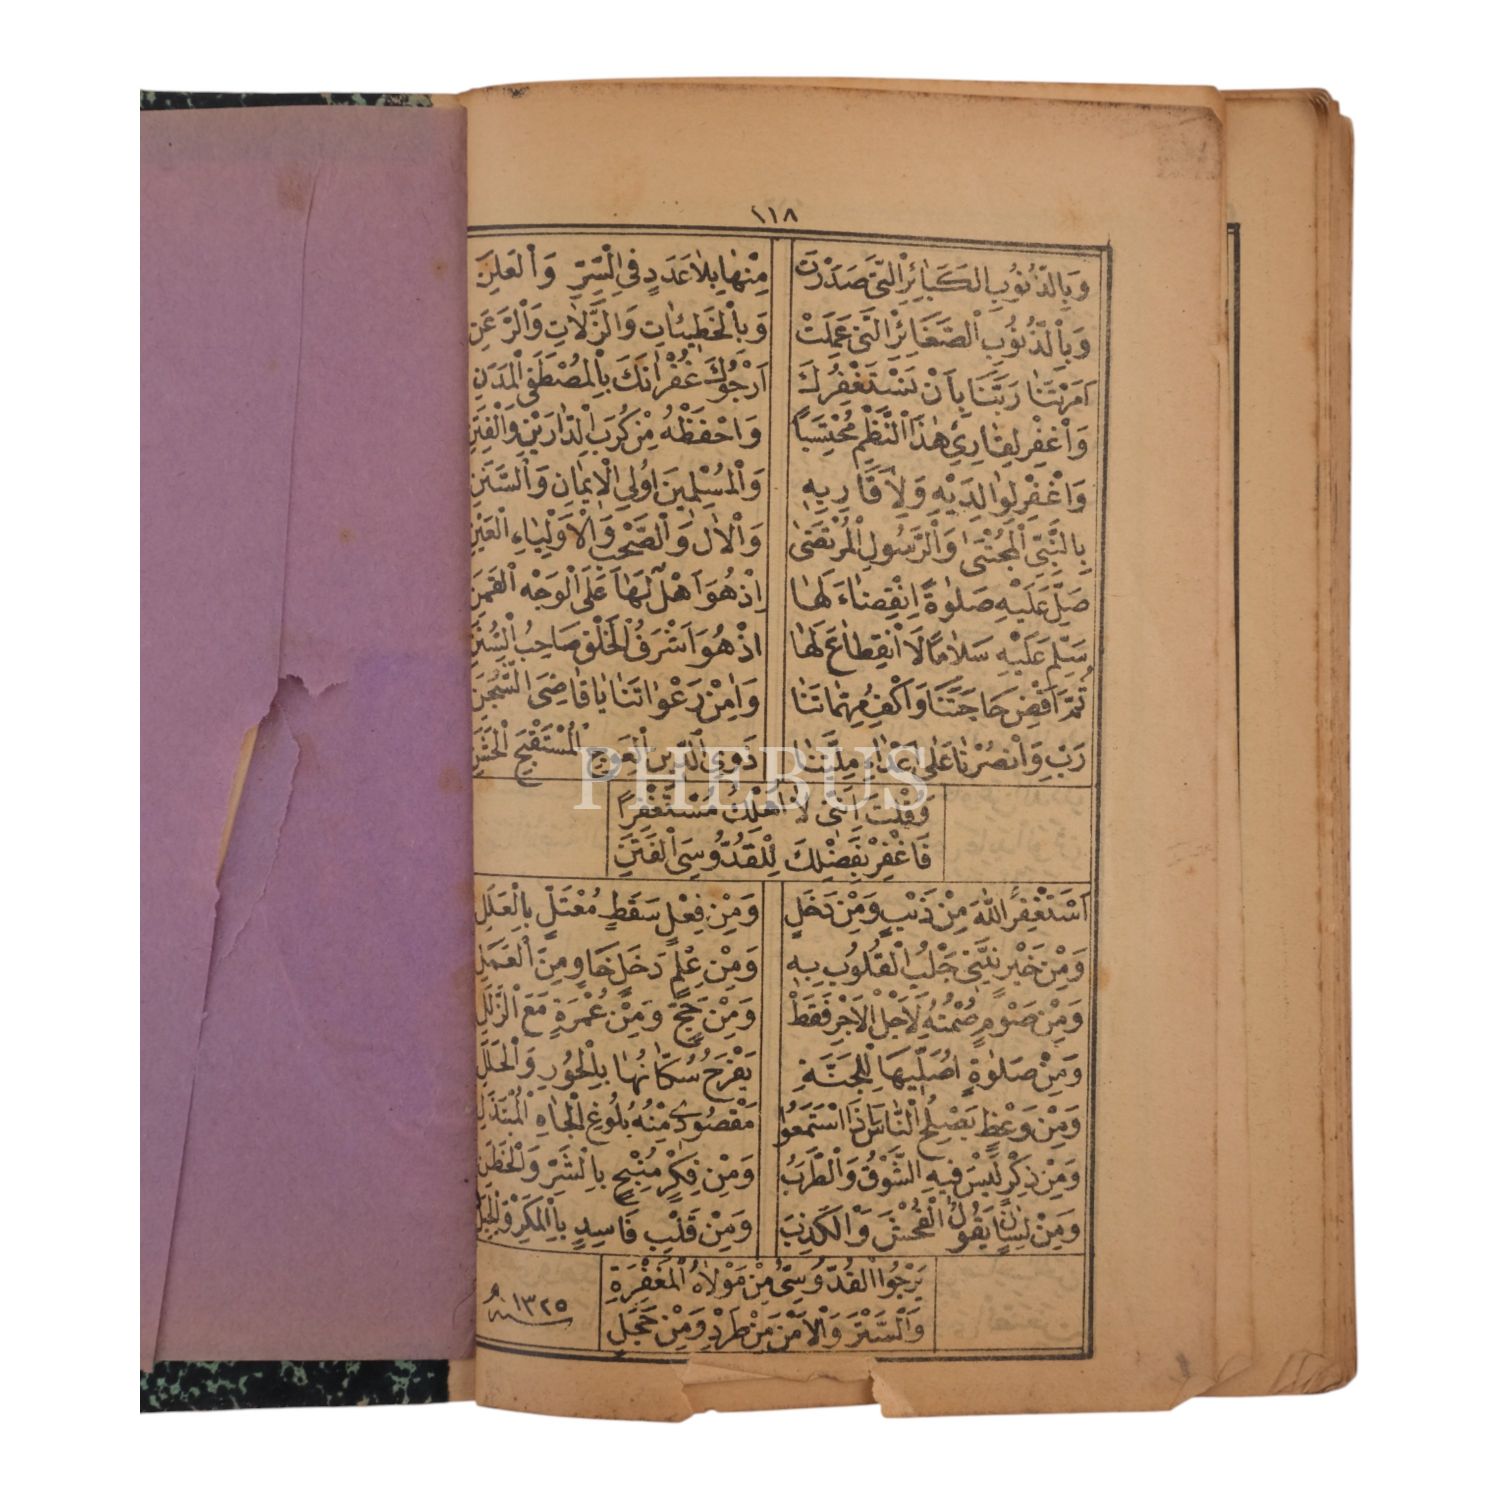 ١١٨
وَبِالذُّنُوبِ الْكَبَائِرِ الَّتِي صَدَرَتْ مِنْهَا بِلَا عَدَدٍ فِي السِّرِّ وَالْعَلَنِ
وَبِالذُّنُوبِ الصَّغَائِرِ الَّتِي عَمِلَتْ وَبِالْخَطِيئَاتِ وَالزَّلَّاتِ
اَمَرْتَنَا رَبَّنَا بِاَنْ نَسْتَغْفِرَكَ اَرْجُوكَ غُفْرَانَكَ بِالْمُصْطَفَى الْمَدَنِ
وَاغْفِرْ لِقَارِئِ هٰذَا النَّظْمِ مُحْتَسِبًا وَاحْفَظْهُ مِنْ كُرَبِ الدَّارَيْنِ وَالْفِتَنِ
وَاغْفِرْ لِوَالِدَيْهِ وَلِاَقَارِبِهِ وَالْمُسْلِمِينَ اُولِي الْاِيمَانِ وَالسُّنَنِ
بِالنَّبِيِّ الْمُجْتَبَى وَالرَّسُولِ الْمُرْتَضَى وَالْاٰلِ وَالصَّحْبِ وَالْاَوْلِيَاءِ
صَلِّ عَلَيْهِ صَلٰوةً اِنْقِضَاءَ لَهَا اِذْ هُوَ اَهْلٌ لَهَا عَلَى الْوَجْهِ الْقَمَنِ
سَلِّمْ عَلَيْهِ سَلَامًا لَا انْقِطَاعَ لَهَا اِذْ هُوَ اَشْرَفُ الْخَلْقِ صَاحِبُ السُّنَنِ
ثُمَّ اقْضِ حَاجَتَنَا وَاكْفِ مُهِمَّاتَنَا وَاٰمِنْ رَعْوَاتَنَا يَا قَاضِيَ
رَبِّ وَانْصُرْنَا عَلَى اَعْدَاءِ مِلَّتِنَا ذَوِي الدِّينِ الْعَوِجِ الْمُسْتَقْبَحِ الْخَشِنِ
وَقُلْتُ اِنِّي لَا اُهْلِكُ مُسْتَغْفِرًا
فَاغْفِرْ بِفَضْلِكَ لِلْقُدُّوسِيِّ الْفَتِنِ
اَسْتَغْفِرُ اللّٰهَ مِنْ ذَنْبٍ وَمِنْ دَخَلٍ وَمِنْ فِعْلٍ سَقَطٍ مُعْتَلٍّ بِالْعِلَلِ
وَمِنْ خَيْرٍ نِيَّتِي جَلْبُ الْقُلُوبِ بِهِ وَمِنْ عِلْمٍ دَخَلٍ خَاوٍ مِنَ الْعَمَلِ
وَمِنْ صَوْمٍ صُمْتُهُ لِاَجْلِ الْاَجْرِ فَقَطْ وَمِنْ حَجٍّ وَمِنْ عُمْرَةٍ مَعَ الزَّلَلِ
وَمِنْ صَلٰوةٍ اُصَلِّيهَا لِلْجَنَّةِ يَفْرَحُ سُكَّانُهَا بِالْحُورِ وَالْحُلَلِ
وَمِنْ وَعْظٍ يُصْلِحُ النَّاسَ اِذَا اسْتَمَعُوا مَقْصُودِي مِنْهُ بُلُوغُ الْجَاهِ الْمُبْتَذَلِ
وَمِنْ ذِكْرٍ لَيْسَ فِيهِ الشَّوْقُ وَالطَّرَبُ وَمِنْ فِكْرٍ مُنْبِحٍ بِالشَّرِّ
وَمِنْ لِسَانٍ يَقُولُ الْفُحْشَ وَالْكَذِبَ وَمِنْ قَلْبٍ فَاسِدٍ بِالْمَكْرِ وَالْحِيَلِ
يَرْجُوا الْقُدُّوسِيُّ مِنْ مَوْلَاهُ الْمَغْفِرَةَ
وَالسَّتْرَ وَالْاَمْنَ مِنْ طَرْدٍ وَمِنْ خَجَلِ
سنه ١٣٢٥
PHEBUS